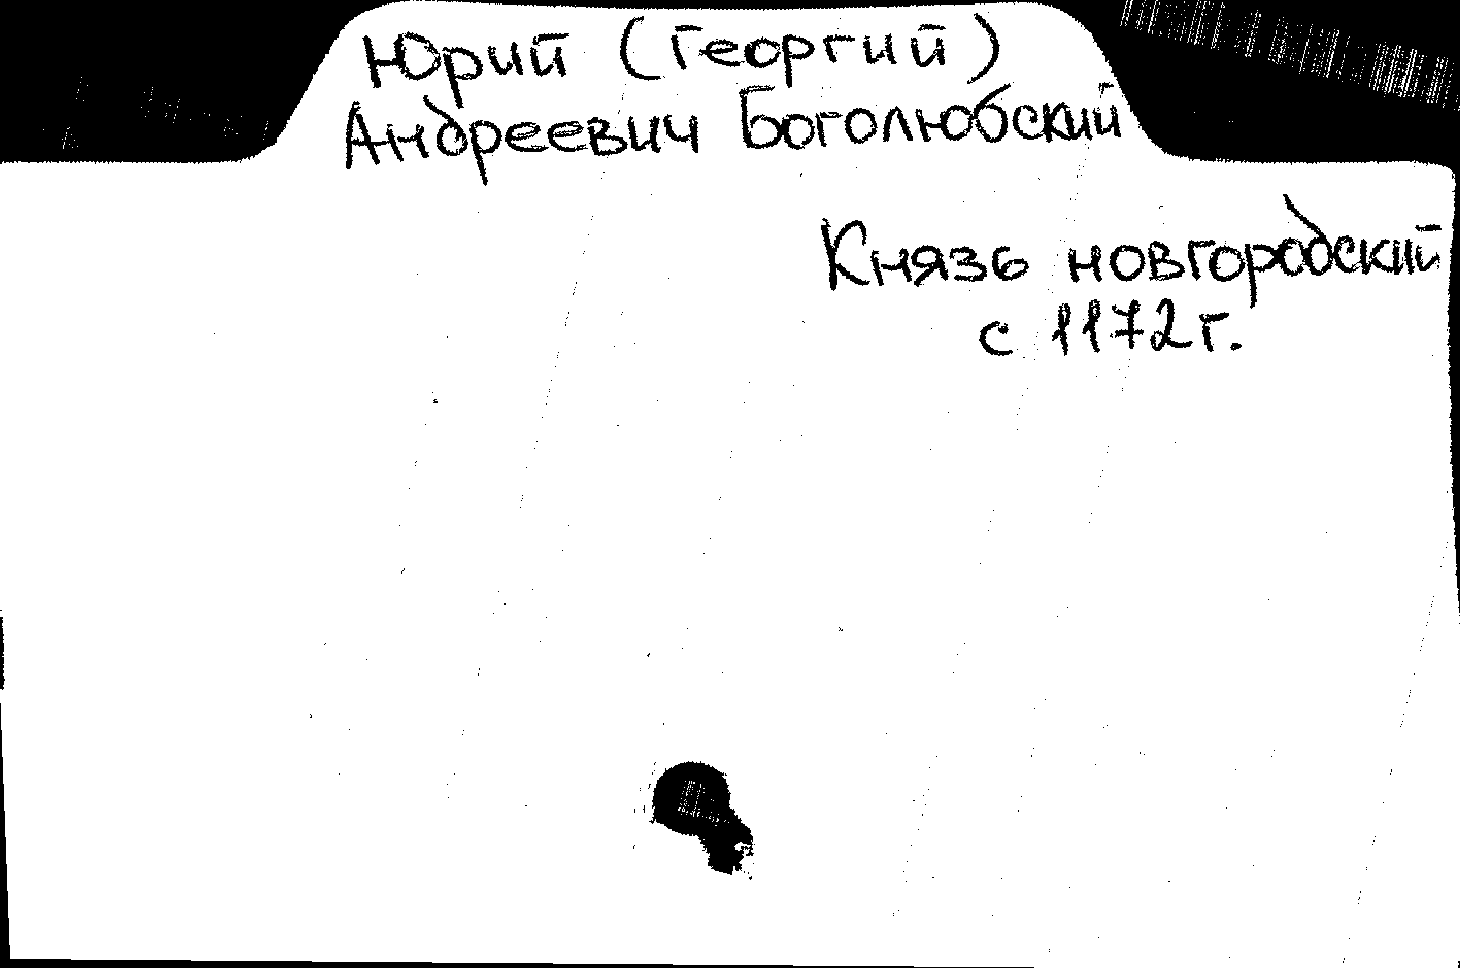 Юрий (Георгий)
Андреевич Боголюбский
Князь новгородский
с 1172г.